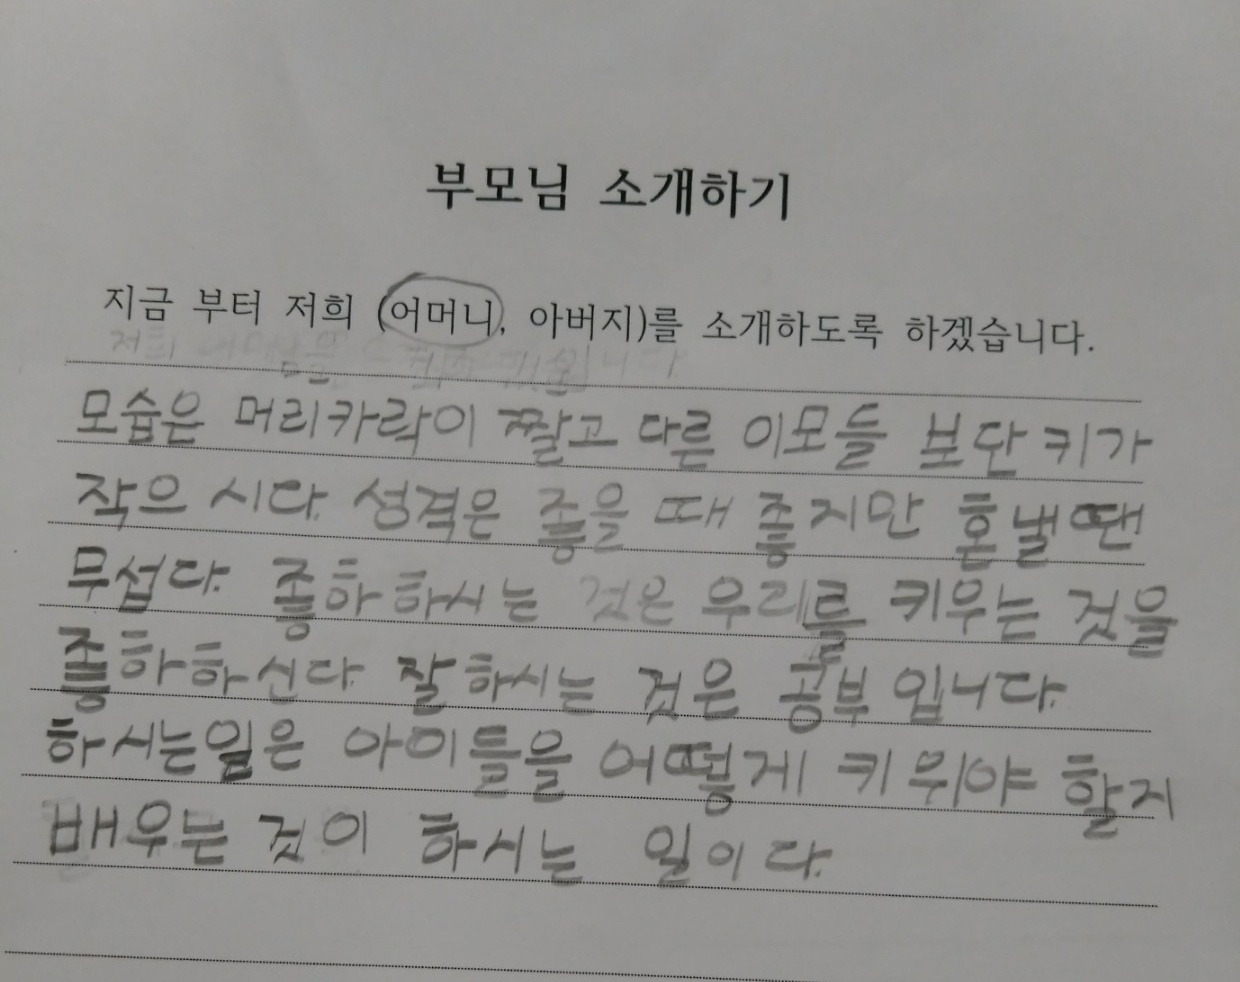 부모님 소개하기
지금 부터 저희 (어머니, 아버지)를 소개하도록 하겠습니다.
저희
모습은 머리카락이 짧고 다른 이모들 보단 키가
작으 시다. 성격은 좋을 때 좋지만 혼낼땐
무섭다. 좋하하시는 것은 우리를 키우는 것을
좋하하신다. 잘하시는 것은 공부 입니다.
하시는일은 아이들을 어떻게 키워야 할지
배우는 것이 하시는 일이다.